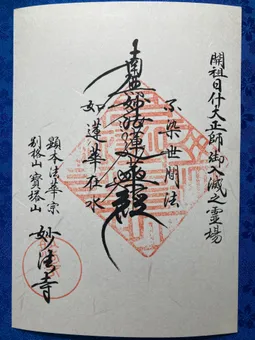 開祖日什大正師御入滅之霊場
不染世間法
南無妙法蓮華経
如蓮華在水
顕本法華宗
別格山 寶塔山
妙法寺